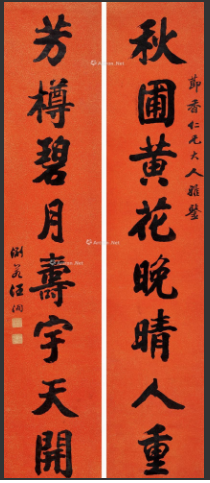 節香仁兄大人雅鑒
秋圃黄花晚晴人重
芳樽碧月壽宇天開
淵若汪洵